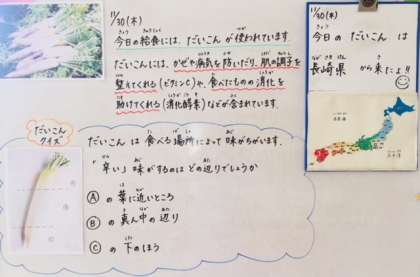 11/30(木)
今日の給食には、だいこんが使われています。
だいこんには、かぜや病気を防いだり、肌の調子を
整えてくれる(ビタミンC)や、食べたものの消化を
助けてくれる(消化酵素)などが含まれています。
だいこん
クイズ
だいこんは食べる場所によって味がちがいます。
「辛い」味がするのはどの辺りでしょうか
Ⓐの葉に近いところ
Ⓑの真ん中の辺り
Ⓒの下のほう
11/30(木)
今日のだいこんは
長崎県から来たよ!!